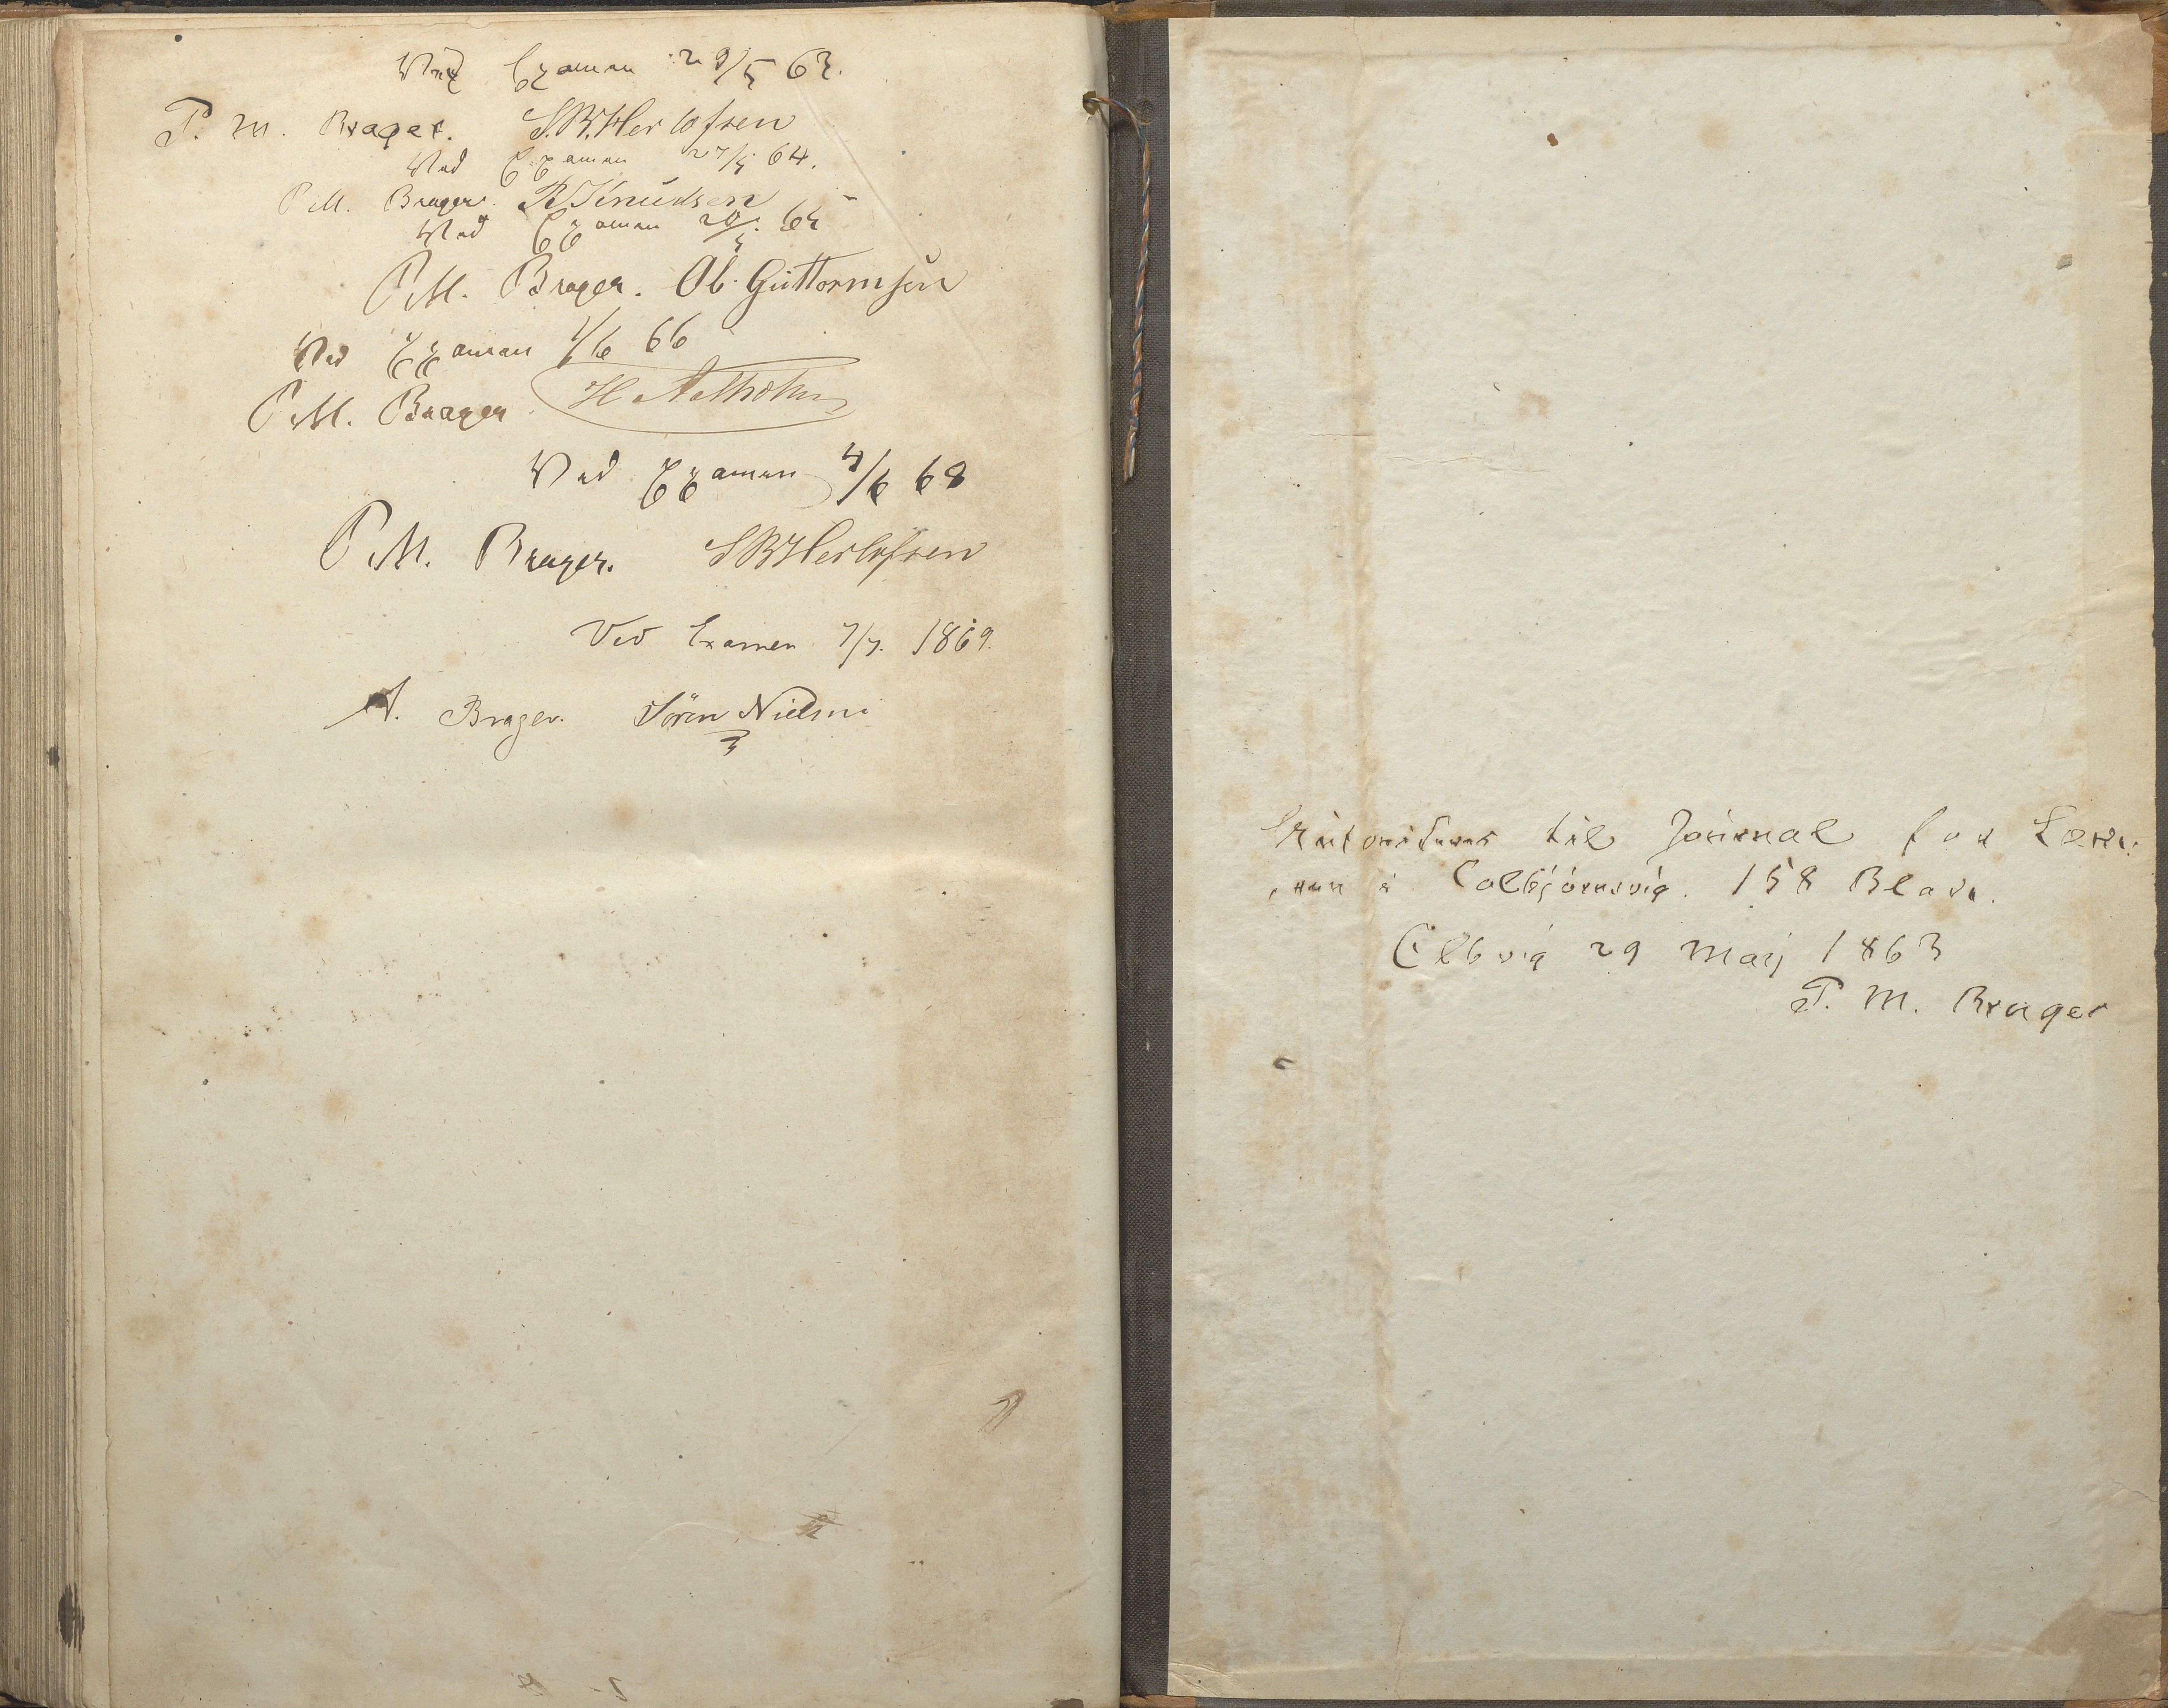 Ved Examen 29/5 63.
P. M. Brager. S.B.Herlofsen
Ved Examen 27/5 64.
P M. Brager. Knudsen
Ved Examen 20/5 65
P M. Brager. Ol. Guttormsen
Ved Examen 1/6 66
P M. Brager H
Ved Examen 4/6 68
P M. Brager. S B Herlofsen
Ved Examen 7/7. 1869.
A. Brager. Sören Nielsen
til Journal for
i Colbjörnsvig. 158 Blade.
Colbvig 29 Maij 1863
P. M. Brager